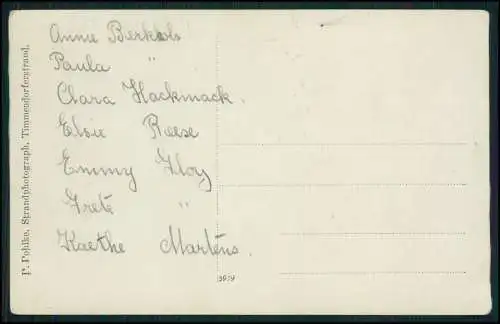 Annie Berkals
Paula "
Clara Hackmack.
Elsie Reese
Emmy Floy
Grete "
Kaethe Martens.
P. Pohlke, Strandphotograph, Timmendorferstrand.